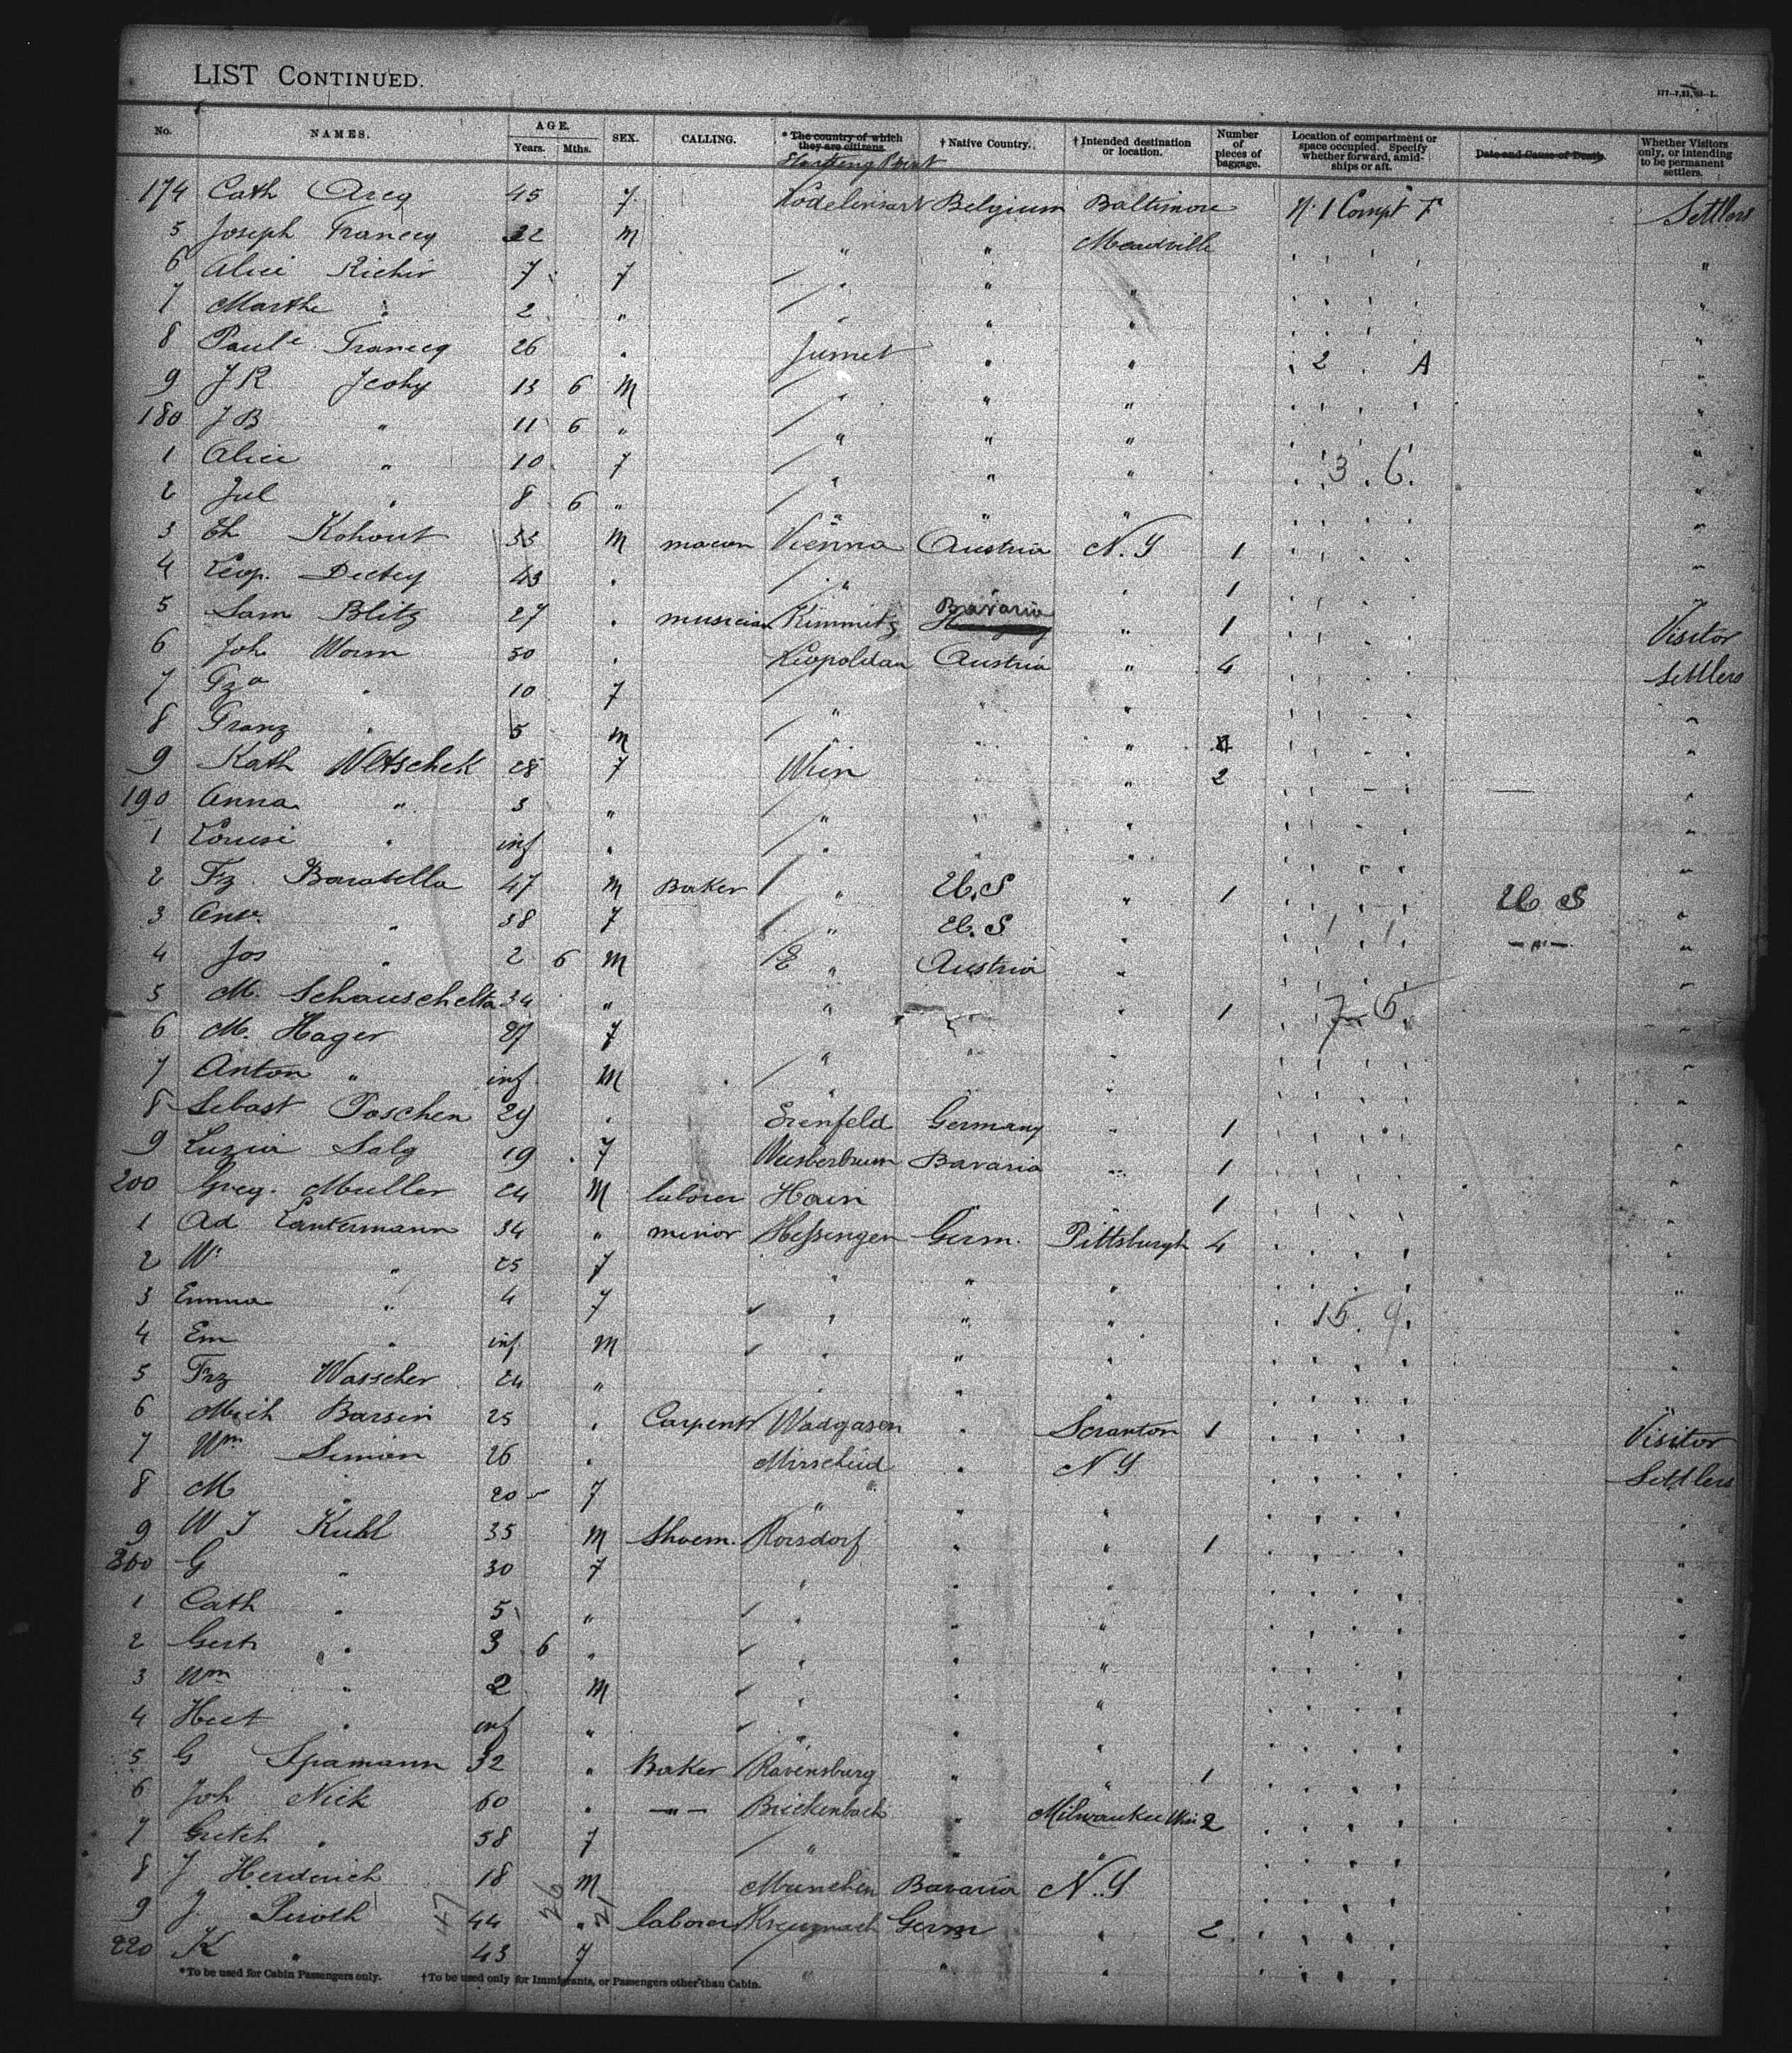 LIST CONTINUED.
177-7,21,'93-L.
No. NAMES. AGE. Years. Mths. SEX. CALLING. * The country of which they are citizens. † Native Country. † Intended destination or location. Number of pieces of baggage. Location of compartment or space occupied. Specify whether forward, amidships or aft. Date and Cause of Death. Whether Visitors only, or intending to be permanent settlers.
Starting Point
174 Cath Arcq 45 F Lodelinsart Belgium Baltimore N. 1 Compt F Settlers
5 Joseph Francq 22 M " " Meadville "
6 Alice Richir 7 F " " " "
7 Marthe " 2 " " " " "
8 Paule Francq 26 " Jumet " " 2 A "
9 JR Jcohy 13 6 M " " " "
180 JB " 11 6 " " " " "
1 Alice " 10 F " " " 3 6 "
2 Jul " 8 6 " " " " "
3 Kohout 33 M macon Vienna Austria N.Y 1 "
4 Leop. 43 " " " " 1 "
5 Sam Blitz 27 " musician Kimmitz Bavaria " 1 Visitor
6 Joh Worm 30 " Leopoldau Austria " 4 Settlers
7 Fza " 10 F " " " "
8 Franz " 5 M " " " "
9 Kath Wltschek 28 F Wien " " 2 "
190 Anna " 3 " " " " "
1 Louise " inf " " " " "
2 Fz Baratella 47 M Baker " U.S " 1 U S "
3 Ann " 38 F " U.S. " -"- "
4 Jos " 2 6 M " Austria " "
5 M. Schauschelka 34 " " " " 1 7 5 "
6 M. Hager 27 F " " " "
7 Anton " inf M " " " "
8 Sebast Paschen 29 " Erenfeld Germany " 1 "
9 Luzia Salg 19 F Weisberbrunn Bavaria " 1 "
200 Greg. Muller 24 M laborer Hain " 1 "
1 Ad Lantermann 34 " minor Hessingen Germ. Pittsburgh 4 "
2 W " 25 F " " " "
3 Emma " 4 F " " " 15 9 "
4 Em " inf M " " " "
5 Frz Wasscher 24 " " " " "
6 Mich Barsin 25 " Carpentr Wadgasen " Scranton 1 Visitor
7 Wm Simon 26 " Mirscheid " N Y Settlers
8 M " 20 F " " " "
9 W J Kuhl 35 M Shoem. Roisdorf " " 1 "
300 G " 30 F " " " "
1 Cath " 5 " " " " "
2 Gert " 3 6 " " " " "
3 Wm " 2 M " " " "
4 Hub " inf " " " " "
5 G Spamann 32 " Baker Ravensburg " " 1 "
6 Joh Nick 60 " -"- Brickenbach " Milwaukee Wis 2 "
7 Gretch " 58 F " " " "
8 J Herderich 18 M Munchen Bavaria N.Y "
9 J. Peroth 44 " laborer Kreuznach Germ " 2 "
220 K " 43 F " " " "
47 26 21
*To be used for Cabin Passengers only. †To be used only for Immigrants, or Passengers other than Cabin.